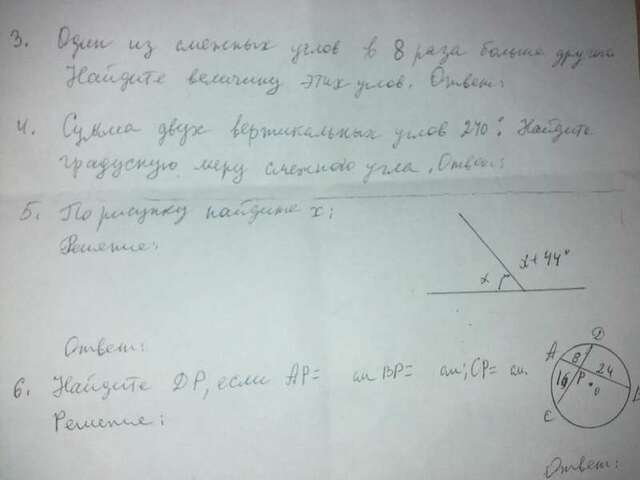 3. Один из смежных углов в 8 раза больше другого
Найдите величину этих углов. Ответ:
4. Сумма двух вертикальных углов 240°. Найдите
градусную меру смежного угла. Ответ:
5. По рисунку найдите x:
Решение:
x x+44°
Ответ:
6. Найдите DP, если AP= см BP= см; CP= см.
Решение:
A D 8 24 16 P O B C
Ответ: